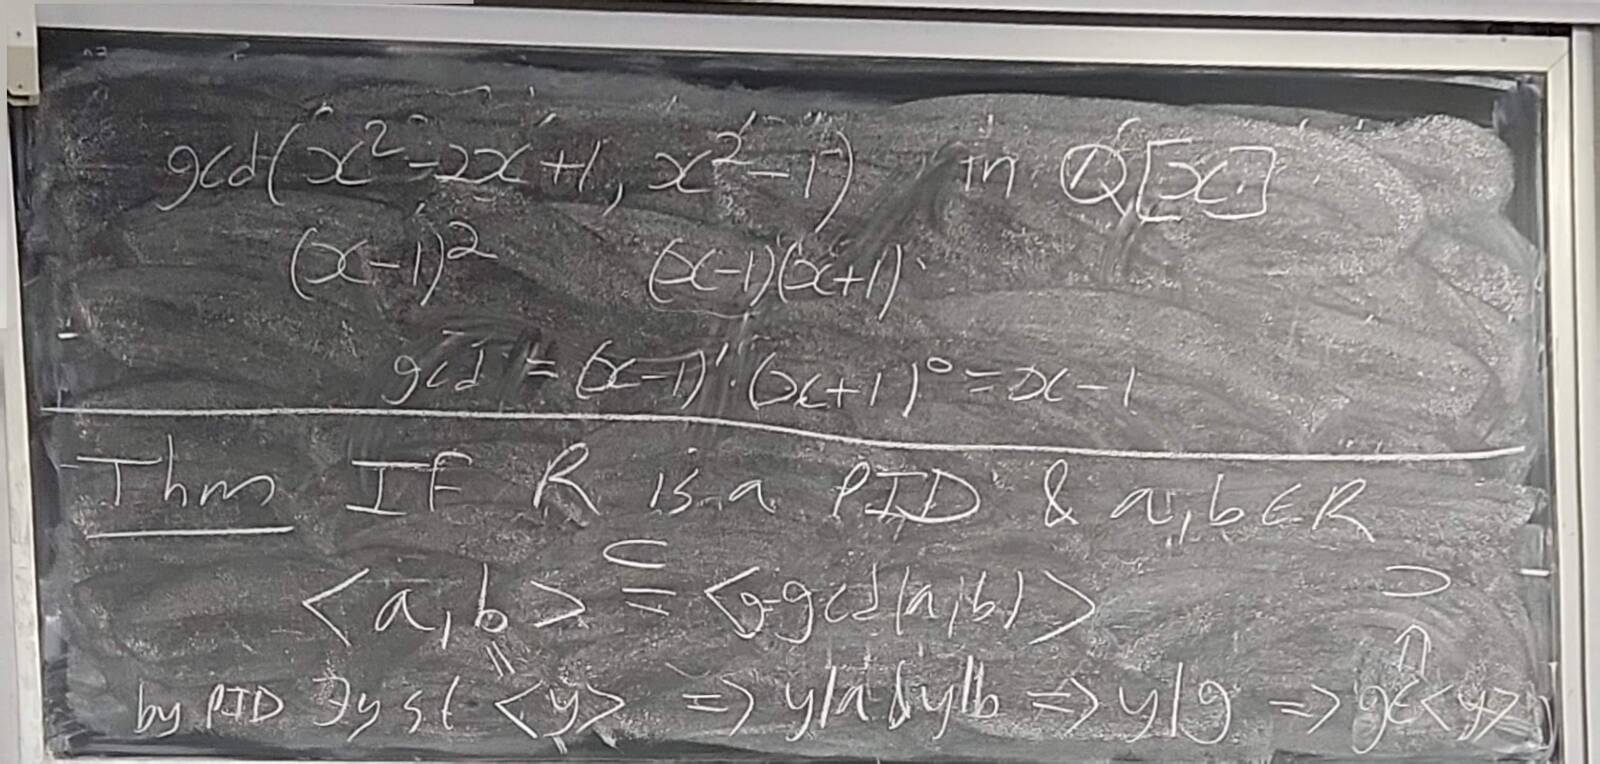 gcd(x²-2x+1, x²-1) in Q[x]
(x-1)² (x-1)(x+1)
gcd = (x-1)¹·(x+1)⁰ = x-1
Thm IF R is a PID & a,b∈R
⊂ ⊃
<a,b> = <g=gcd(a,b)>
|| ⇑
by PID ∃y st <y> => y|a & y|b => y|g => g∈<y>